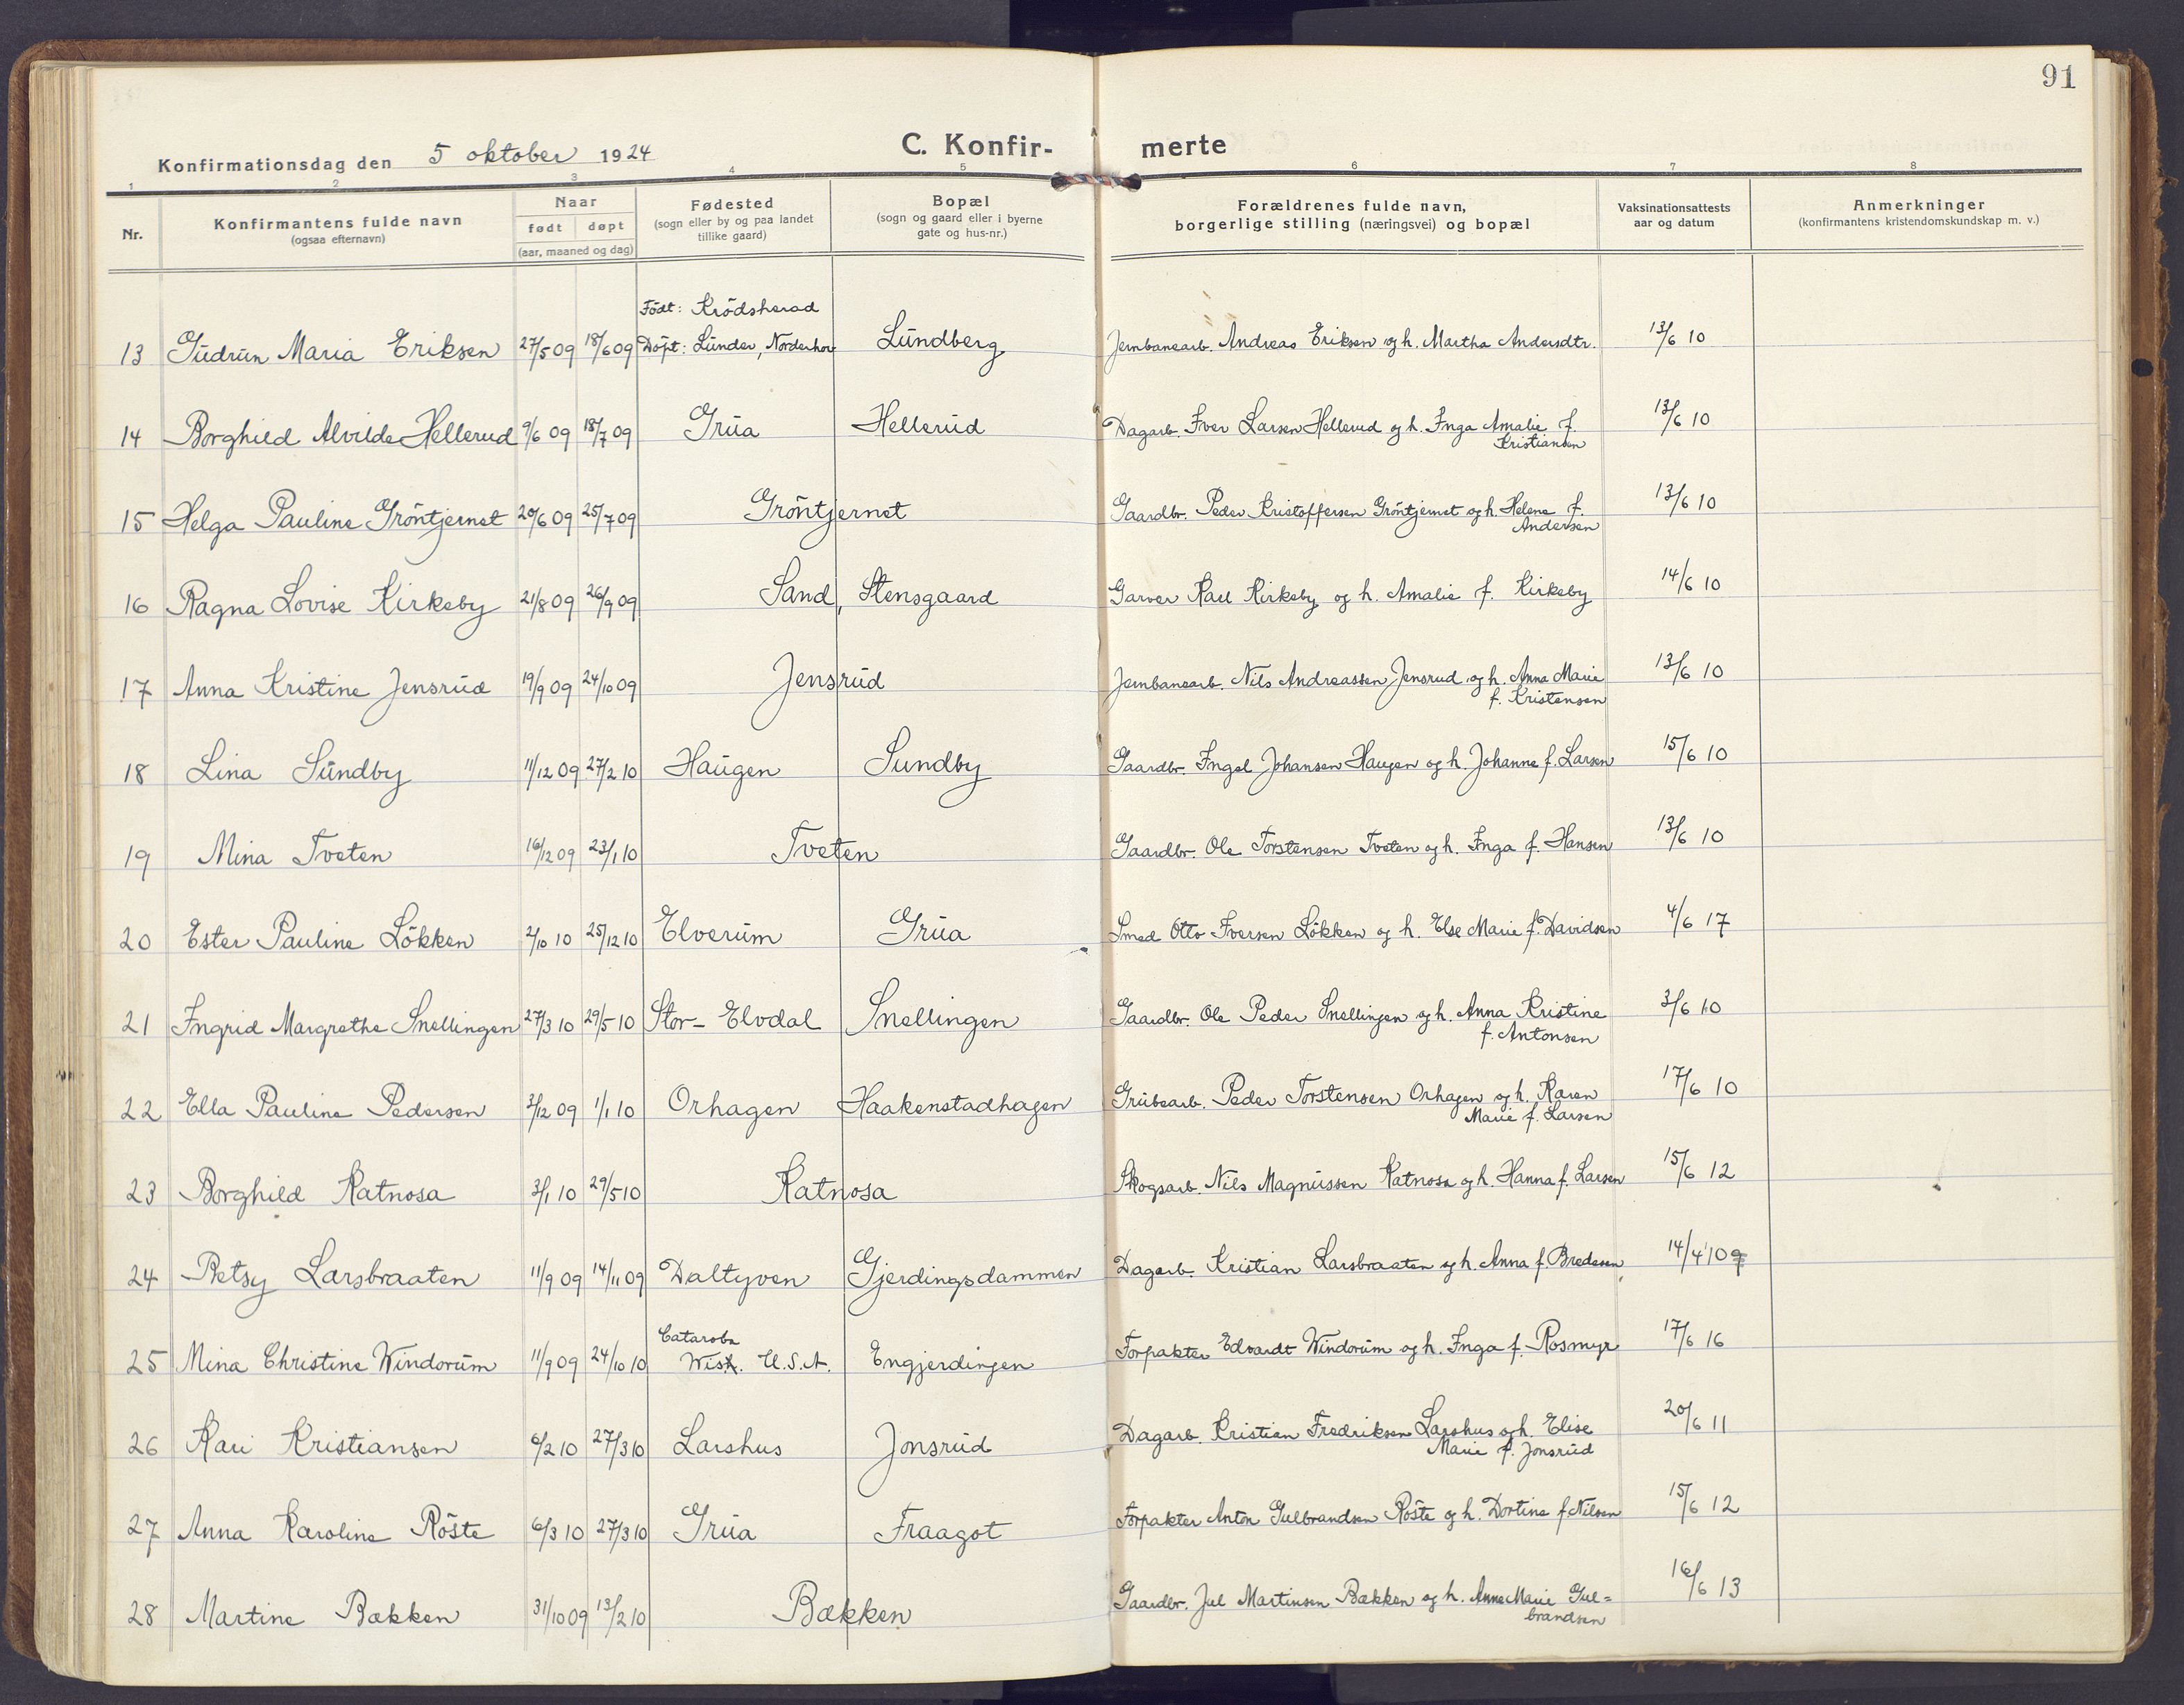 91
C. Konfir- merte
Konfirmationsdag den 5 oktober 1924
1 2 3 4 5 6 7 8
Nr. Konfirmantens fulde navn Naar Fødested Bopæl Forældrenes fulde navn, Vaksinationsattests Anmerkninger
(ogsaa efternavn) født døpt (sogn eller by og paa landet (sogn og gaard eller i byerne borgerlige stilling (næringsvei) og bopæl aar og datum (konfirmantens kristendomskundskap m. v.)
(aar, maaned og dag) tillike gaard) gate og hus-nr.)
Födt: Krödsherad
13 Gudrun Maria Eriksen 27/5 09 18/6 09 Döpt: Lunder, Norderhov Lundberg Jernbanearb. Andreas Eriksen og h. Martha Andersdtr. 13/6 10
14 Borghild Alvilde Hellerud 9/6 09 18/7 09 Grua Hellerud Dagarb. Iver Larsen Hellerud og h. Inga Amalie f. 13/6 10
Kristiansen
15 Helga Pauline Gröntjernet 20/6 09 25/7 09 Gröntjernet Gaardbr. Peder Kristoffersen Gröntjernet og h. Helene f. 13/6 10
Andersen
16 Ragna Lovise Kirkeby 21/8 09 26/9 09 Sand, Stensgaard Garver Karl Kirkeby og h. Amalie f. Kirkeby 14/6 10
17 Anna Kristine Jensrud 19/9 09 24/10 09 Jensrud Jernbanearb. Nils Andreassen Jensrud og h. Anna Marie 13/6 10
f. Kristensen
18 Lina Sundby 11/12 09 27/2 10 Haugen Sundby Gaardbr. Engel Johansen Haugen og h. Johanne f. Larsen 15/6 10
19 Mina Tveten 16/12 09 23/1 10 Tveten Gaardbr. Ole Torstensen Tveten og h. Inga f. Hansen 13/6 10
20 Ester Pauline Lökken 2/10 10 25/12 10 Elverum Grua Smed Otto Iversen Lökken og h. Else Marie f. Davidsen 4/6 17
21 Ingrid Margrethe Snellingen 27/3 10 29/5 10 Stor-Elvdal Snellingen Gaardbr. Ole Peder Snellingen og h. Anna Kristine 3/6 10
f. Antonsen
22 Ella Pauline Pedersen 3/12 09 1/1 10 Orhagen Haakenstadhagen Grubearb. Peder Torstensen Orhagen og h. Karen 17/6 10
Marie f. Larsen
23 Borghild Katnosa 3/1 10 29/5 10 Katnosa Skogsarb. Nils Magnussen Katnosa og h. Hanna f. Larsen 15/6 12
24 Betsy Larsbraaten 11/9 09 14/11 09 Daltyven Gjerdingsdammen Dagarb. Kristian Larsbraaten og h. Anna f. Bredesen 14/4 10
Cataroba
25 Mina Christine Windorum 11/9 09 24/10 10 Wis. U.S.A. Engjerdingen Forpakter Edvardt Windorum og h. Inga f. Rosmyr 17/6 16
26 Kari Kristiansen 6/2 10 27/3 10 Larshus Jonsrud Dagarb. Kristian Fredriksen Larshus og h. Elise 20/6 11
Marie f. Jonsrud
27 Anna Karoline Röste 6/3 10 27/3 10 Grua Fraagot Forpakter Anton Gulbrandsen Röste og h. Dortine f. Nilsen 15/6 12
28 Martine Bækken 31/10 09 13/2 10 Bækken Gaardbr. Jul Martinsen Bækken og h. Anne Marie Gul=
brandsen 16/6 13